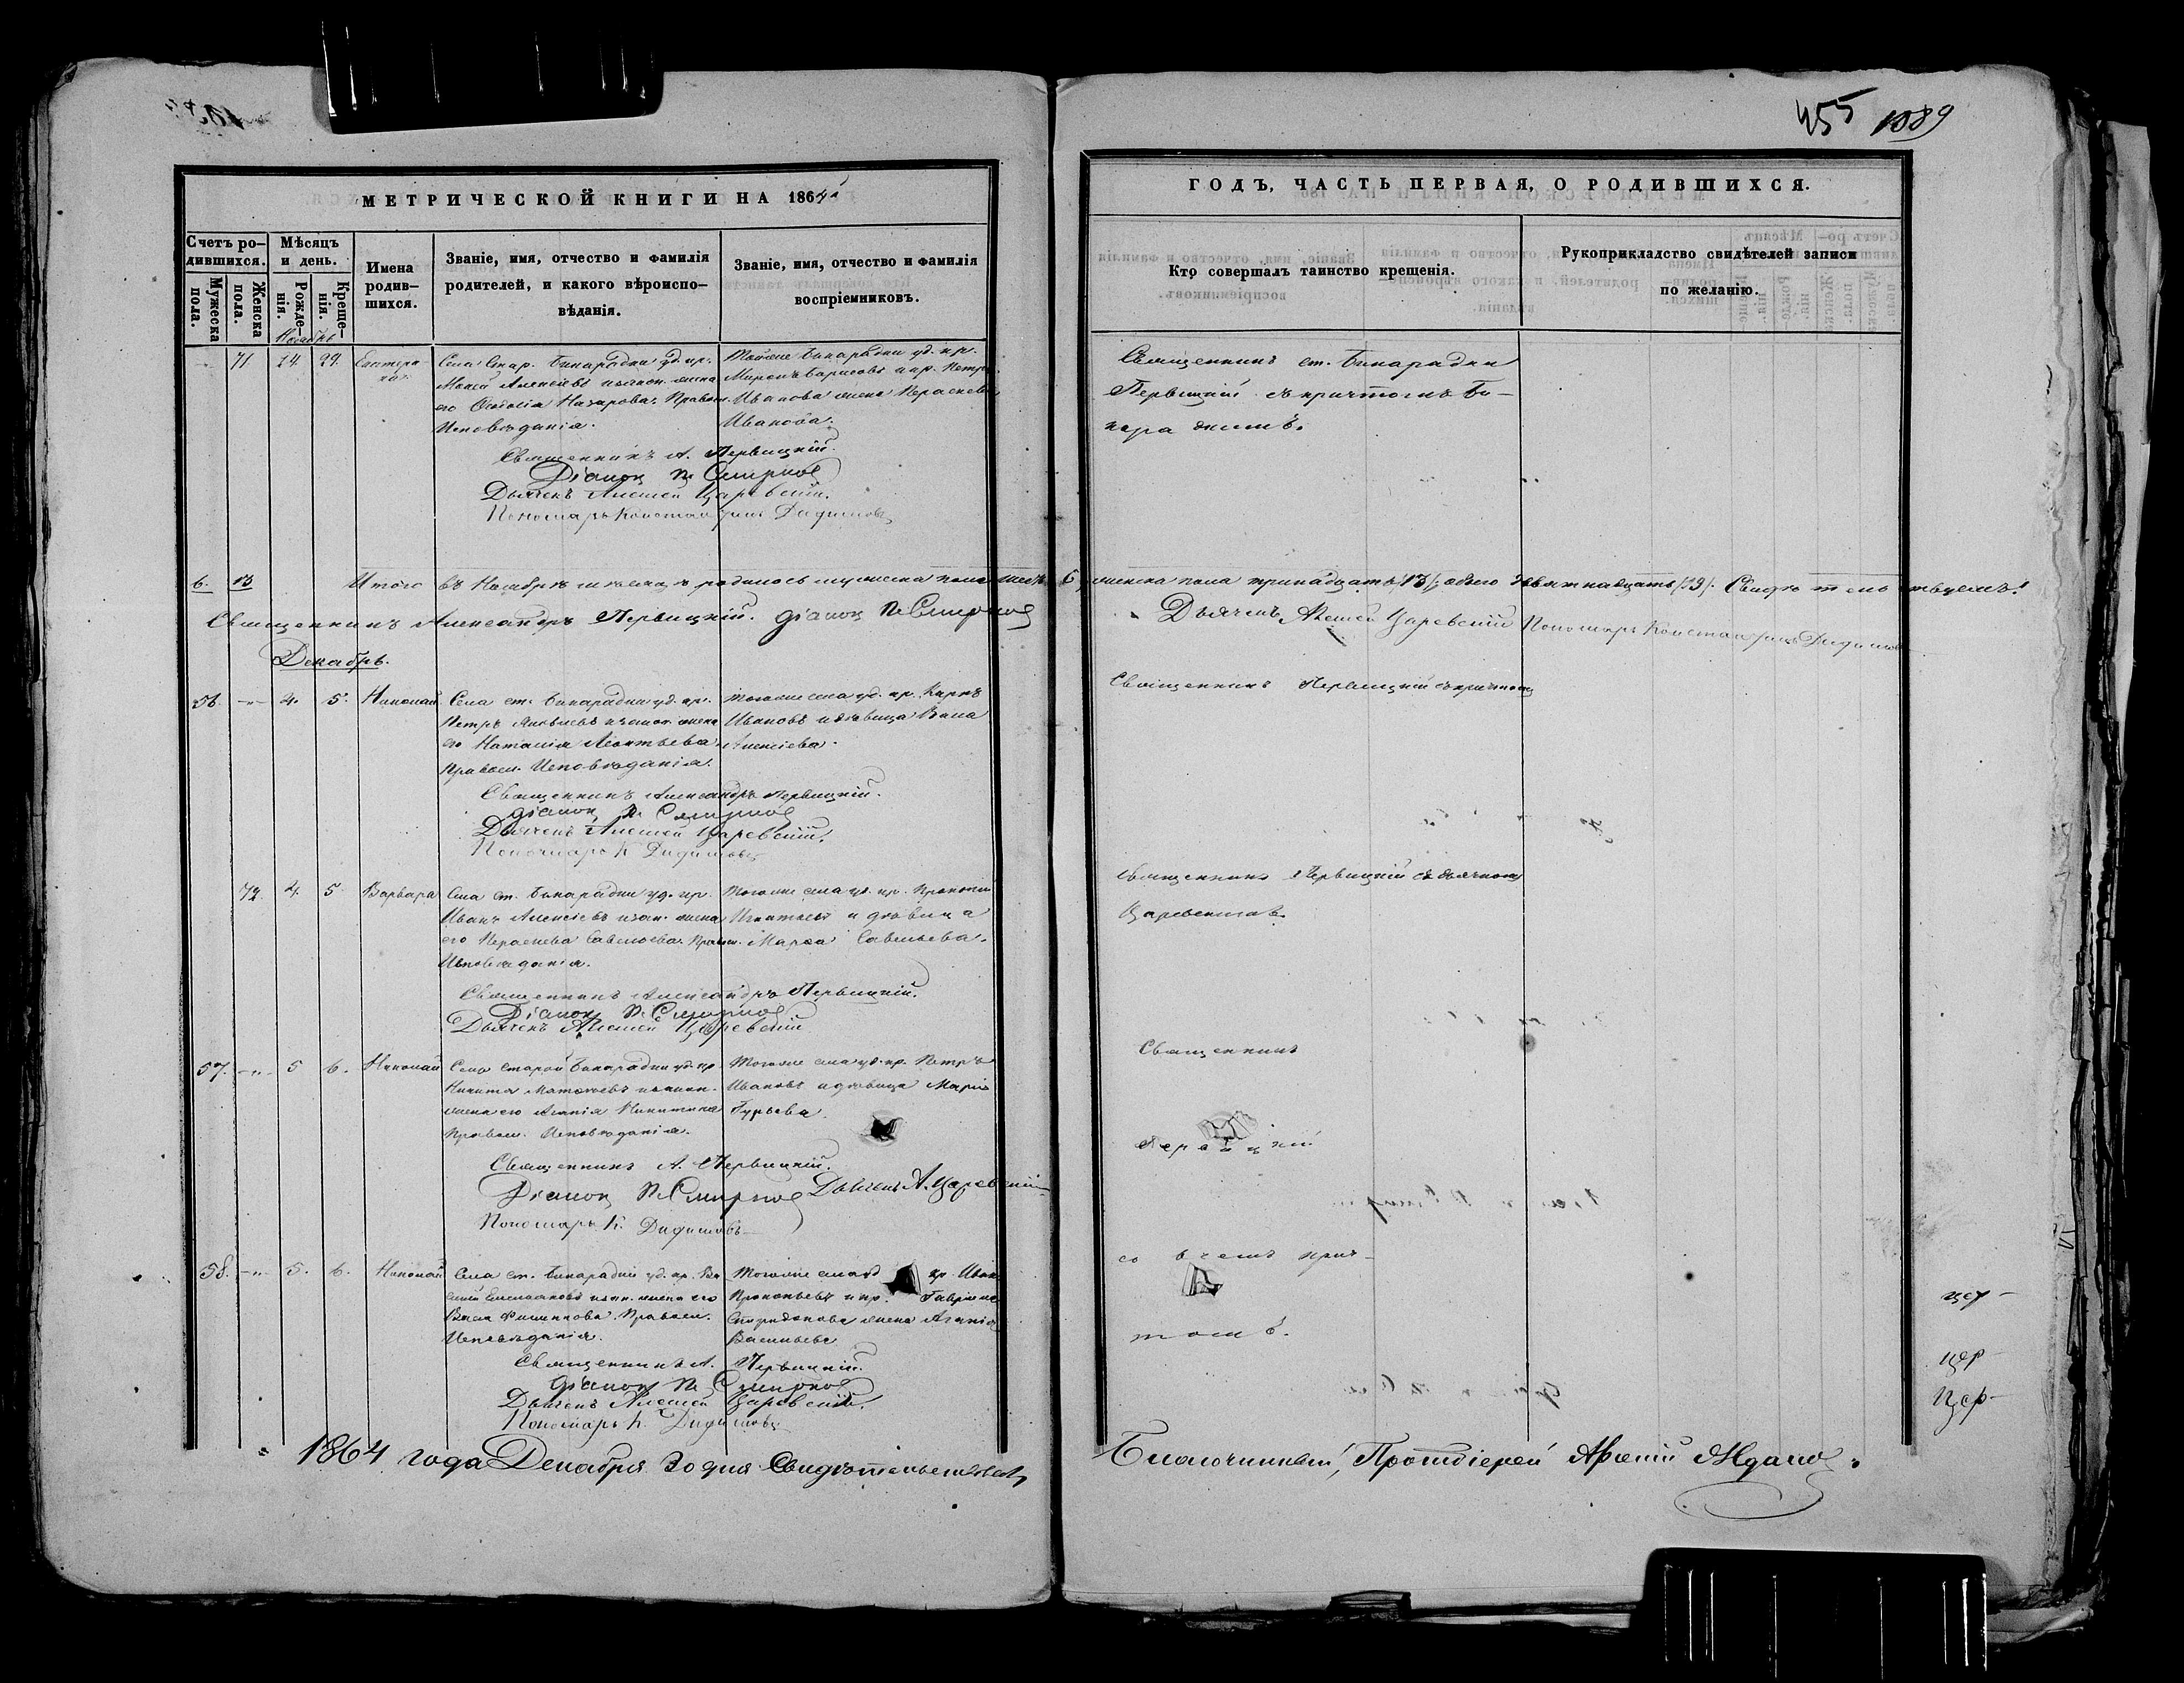 455 1089
МЕТРИЧЕСКОЙ КНИГИ НА 1864
ГОДЪ, ЧАСТЬ ПЕРВАЯ, О РОДИВШИХСЯ.
Счетъ ро-
дившихся.
Мужеска пола.
Женска пола.
Мѣсяцъ
и день.
Рожде-
нія.
Креще-
нія.
Имена
родив-
шихся.
Званіе, имя, отчество и фамилія
родителей, и какого вѣроиспо-
вѣданія.
Званіе, имя, отчество и фамилія
воспріемниковъ.
Кто совершалъ таинство крещенія.
Рукоприкладство свидѣтелей записи
по желанію.
Ноябрь
71 24 29 Екатери
на
Села Стар. Бинарадки уд. кр.
Алексѣевъ и законн. жена
его Назарова. Правосл.
Исповѣданія.
Тойже Бинарадки уд. кр.
Миронъ Борисовъ и кр. Петра
Иванова жена Параскева
Иванова.
Священникъ ст. Бинарадки
Первицкій съ причтомъ Би-
нарадкимъ.
Священникъ А. Первицкій.
Діаконъ П. Смирновъ
Дьячекъ Алексѣй Царевскій.
Пономарь Константинъ Дидимовъ
6. 13 Итого въ Ноябрѣ мѣсяцѣ родилось мужеска пола шесть 6, женска пола тринадцать /13/; обоего девятнадцать /19/. Свидѣтельствуемъ:
Священникъ Александръ Первицкій. Діаконъ П. Смирновъ
Дьячекъ Алексѣй Царевскій Пономарь Константинъ Дидимовъ
Декабрь.
56. -„- 4. 5. Николай
Села ст. Бинарадки уд. кр.
Петръ Яковлевъ и закон. жена
его Наталія Леонтьева
Правосл. Исповѣданія.
Тогоже села уд. кр. Карпъ
Ивановъ и дѣвица Васа
Алексіева.
Священникъ Первицкій съ причтомъ
Священникъ Александръ Первицкій.
Діаконъ П. Смирновъ
Дьячекъ Алексѣй Царевскій.
Пономарь К. Дидимовъ
72. 4. 5 Варвара
Села ст. Бинарадки уд. кр.
Иванъ Алексіевъ и зак. жена
его Параскева Савельева. Правосл.
Исповѣданія.
Тогоже села уд. кр. Прокопій
Игнатьевъ и дѣвица
Марѳа Савельева.
Священникъ Первицкій съ дьячкомъ
Царевскимъ.
Священникъ Александръ Первицкій.
Діаконъ П. Смирновъ
Дьячекъ Алексѣй Царевскій
57. -„- 5 6. Николай
Села Старой Бинарадки уд. кр.
Никита Матвѣевъ и закон.
жена его Агапія Никитина
Правосл. Исповѣданія.
Тогоже села уд. кр. Петръ
Ивановъ и дѣвица Марія
Гурьева.
Священникъ
Первицкій
Священникъ А. Первицкій.
Діаконъ П. Смирновъ Дьячекъ А. Царевскій
Пономарь К. Дидимовъ
58. -„- 5. 6. Николай
Села ст. Бинарадки уд. кр. Ва
силій и зак. жена его
Васа Филиппова. Правосл.
Исповѣданія.
Тогоже села уд. кр. Иванъ
Прокопьевъ и кр. Гавріила
Спиридонова жена Агапія
Васильева
со всемъ прич-
томъ.
Священникъ А. Первицкій.
Діаконъ П. Смирновъ
Дьячекъ Алексѣй Царевскій.
Пономарь К. Дидимовъ
цер-
цер-
Цер-
1864 года Декабря 30 дня Свидѣтельствовалъ
Благочинный, Протоіерей